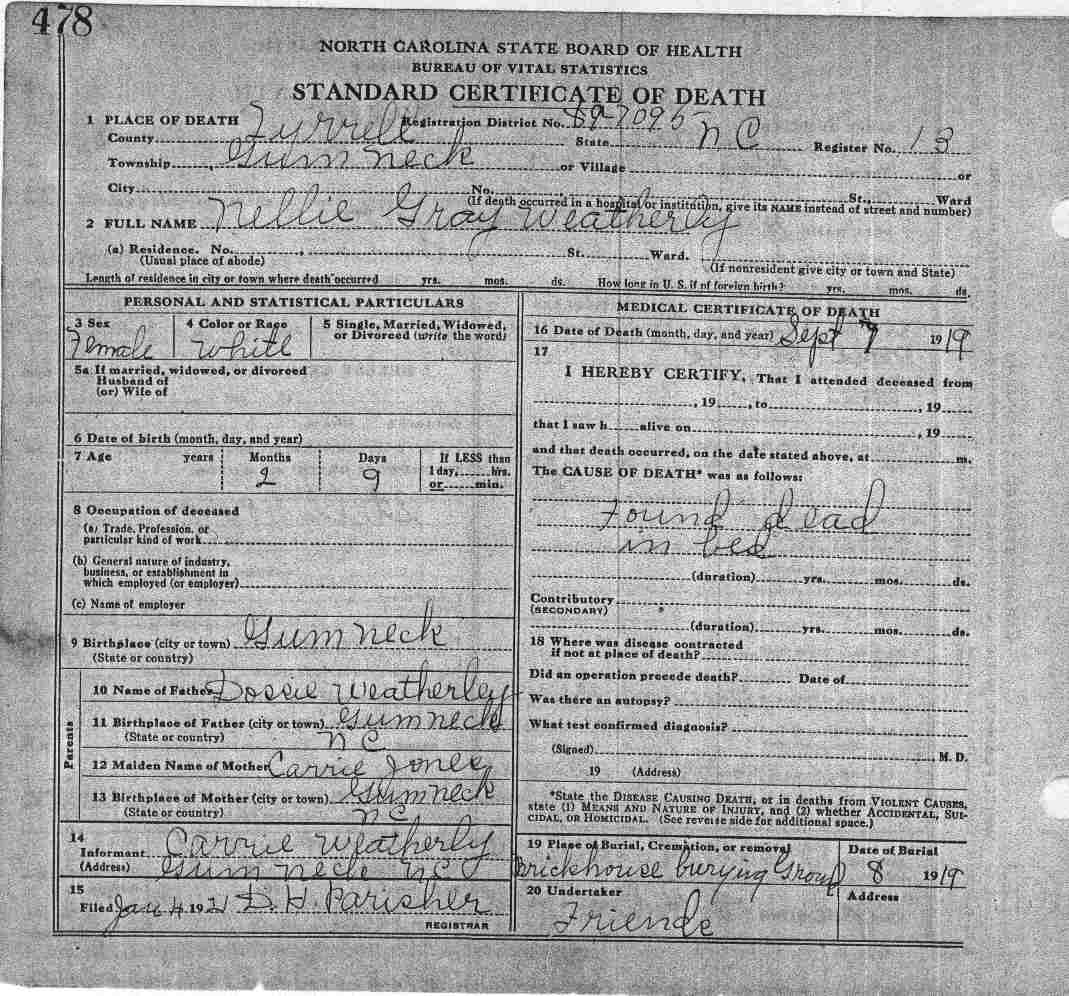 478
NORTH CAROLINA STATE BOARD OF HEALTH
BUREAU OF VITAL STATISTICS
STANDARD CERTIFICATE OF DEATH
1 PLACE OF DEATH Registration District No. 89-7095
County Tyrrell State N C Register No. 13
Township Gum Neck or Village or
City No. St., Ward
(If death occurred in a hospital or institution, give its NAME instead of street and number)
2 FULL NAME Nellie Gray Weatherly
(a) Residence. No. , St. Ward.
(Usual place of abode) (If nonresident give city or town and State)
Length of residence in city or town where death occurred yrs. mos. ds. How long in U. S. if of foreign birth? yrs. mos. ds.
PERSONAL AND STATISTICAL PARTICULARS
3 Sex 4 Color or Race 5 Single, Married, Widowed, or Divorced (write the word)
Female White
5a If married, widowed, or divorced
Husband of
(or) Wife of
6 Date of birth (month, day, and year)
7 Age years Months Days If LESS than
1 day, hrs.
or min.
2 9
8 Occupation of deceased
(a) Trade, Profession, or
particular kind of work
(b) General nature of industry,
business, or establishment in
which employed (or employer)
(c) Name of employer
9 Birthplace (city or town) Gum Neck
(State or country)
Parents
10 Name of Father Dossie Weatherley
11 Birthplace of Father (city or town) Gum neck
(State or country) N C
12 Maiden Name of Mother Carrie Jones
13 Birthplace of Mother (city or town) Gum neck
(State or country) N C
14
Informant Carrie Weatherly
(Address) Gum Neck N C
15
Filed Jan 4 1921 D. H. Parisher
REGISTRAR
MEDICAL CERTIFICATE OF DEATH
16 Date of Death (month, day, and year) Sept 7 1919
17
I HEREBY CERTIFY, That I attended deceased from
, 19 , to , 19
that I saw h alive on , 19
and that death occurred, on the date stated above, at m.
The CAUSE OF DEATH* was as follows:
Found dead
in bed
(duration) yrs. mos. ds.
Contributory
(SECONDARY)
(duration) yrs. mos. ds.
18 Where was disease contracted
if not at place of death?
Did an operation precede death? Date of
Was there an autopsy?
What test confirmed diagnosis?
(Signed) , M. D.
19 (Address)
*State the DISEASE CAUSING DEATH, or in deaths from VIOLENT CAUSES,
state (1) MEANS AND NATURE OF INJURY, and (2) whether ACCIDENTAL, SUI-
CIDAL, OR HOMICIDAL. (See reverse side for additional space.)
19 Place of Burial, Cremation, or removal Date of Burial
Brickhouse burying Ground 8 1919
20 Undertaker Address
Friends